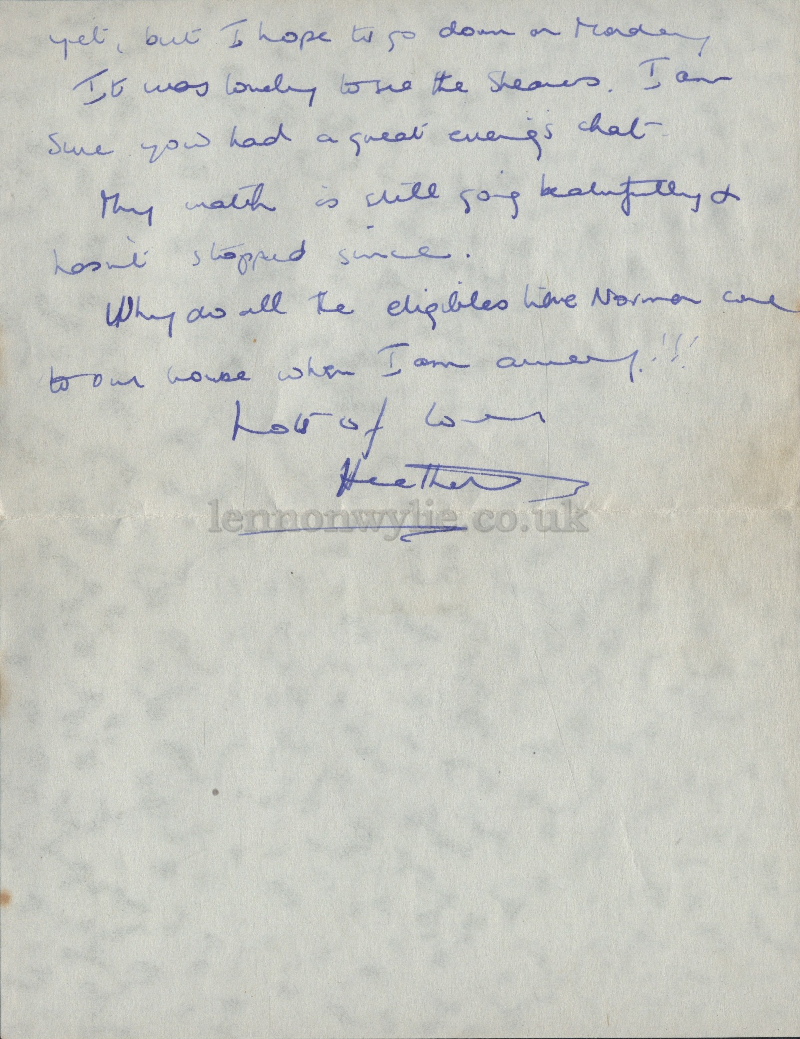 yet, but I hope to go down on Monday
It was lovely to see the Shearers. I am
sure you had a great evening's chat
My watch is still going beautifully &
hasn't stopped since.
Why do all the eligibles like Norman come
to our house when I am away.!!!
Lots of love
Heather
lennonwylie.co.uk